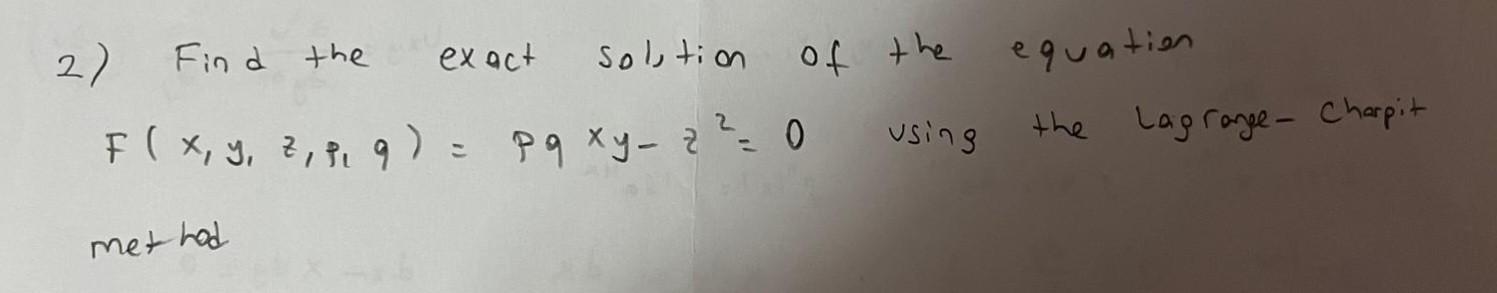 2) Find the exact solution of the equation
F(x, y, z, p, q) = pqxy - z² = 0 using the Lagrange-Charpit
method